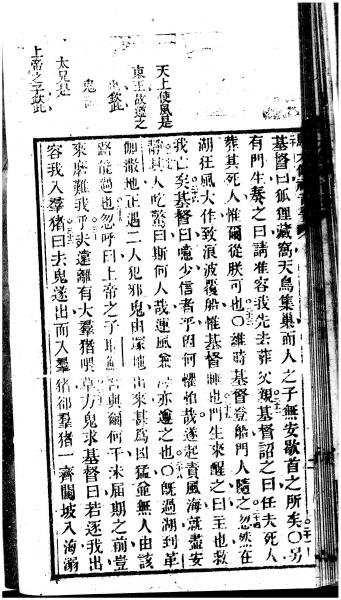 基督曰狐狸藏窩天鳥集巢而人之子無安歇首之所矣○另
有門生奏之曰請准容我先去葬父親基督詔之曰任夫死人
葬其死人惟爾從朕可也○維時基督登船門人隨之忽然在
湖狂風大作致浪波覆船惟基督睡也門生來醒之曰主也救
我亡矣基督曰噫少信者乎因何懼怕哉遂起責風海就盡安
靜其人吃驚曰斯何人哉運風兼海亦遵之也○旣過湖到革
伽撒地正遇二人犯邪鬼由墳地出來甚為凶猛爺無人由該
路能過也忽呼曰上帝之子耶穌吾與爾何干未屆期之前豈
來磨難我乎夫遠離有大羣猪喫草方鬼求基督曰若逐我出
容我入羣猪曰去鬼遂出而入羣猪卻羣猪一齊闖坡入海溺
天上使風是
東王故遵之
欽此
鬼
太兄是
上帝之子欽此